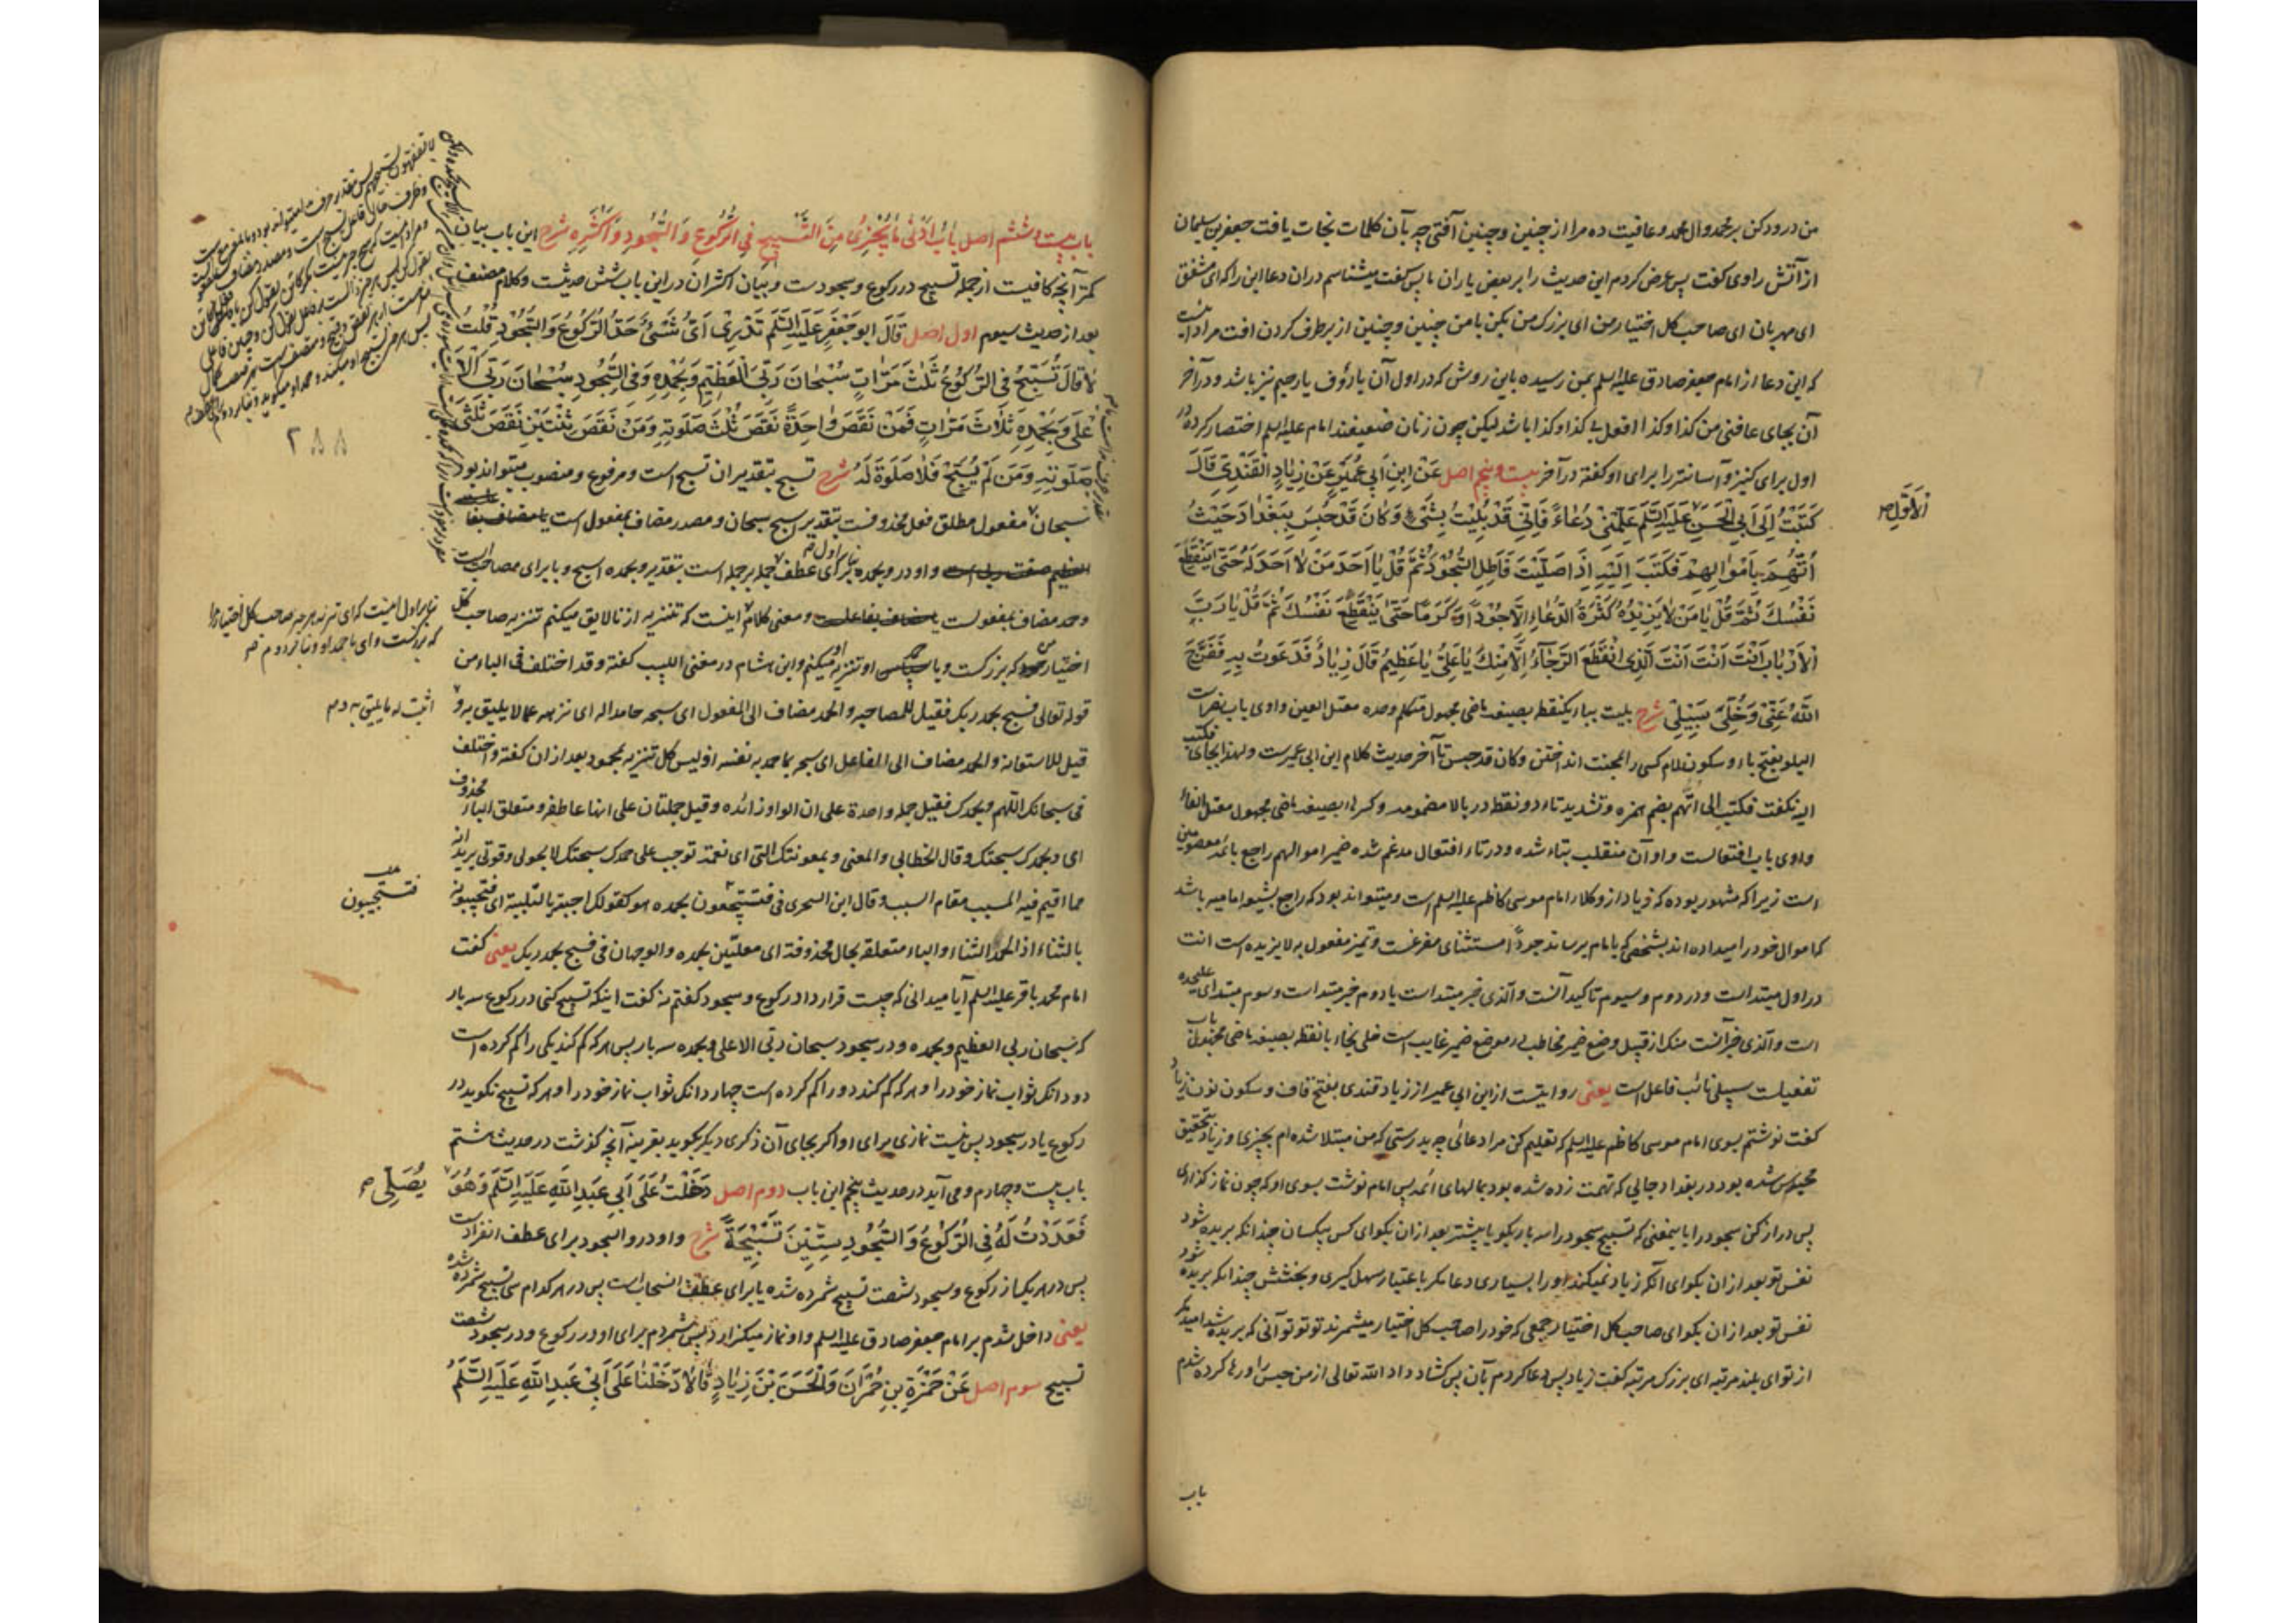 من درود کن بر محمد وال محمد وعافیت ده مرا از چنین وچنین آفتی چه بآن کلمات نجات یافت جعفر بن سلیمان
از آتش راوی گفت پس عرض کردم این حدیث را بر بعض یاران ما پس گفت میشناسم در ان دعا این را که ای مشفق
ای مهربان ای صاحب کل اختیار من ای بزرک من بکن با من چنین وچنین از برطرف کردن افت مراد اینست
که این دعا از امام جعفر صادق علیه السلم بمن رسیده باین روش که در اول آن یا رؤف یا رحیم نیز باشد ودر آخر
آن بجای عافنی من کذا وکذا افعل بی کذا وکذا باشد لیکن چون زنان ضعیفند امام علیه السلم اختصار کرده در
اول برای کنیز وآسانتر را برای او گفته در آخر بیست وپنجم اصل عَنْ ابنِ اَبِي عُمَيْرٍ عَنْ زِيَادٍ الْقَنْدِيِّ قَالَ
كَتَبْتُ اِلَى اَبِي الْحَسَنِ الْاَوَّلِ عَلَيْهِ السَّلَم عَلِّمْنِي دُعَاءً فَاِنِّي قَدْ بُلِيتُ بِشَيْءٍ وَكَانَ قَدْ حُبِسَ بِبَغْدَادَ حَيْثُ
اُتُّهِمَ بِاَمْوَالِهِمْ فَكَتَبَ اِلَيْهِ اِذَا صَلَّيْتَ فَاَطِلِ السُّجُودَ ثُمَّ قُلْ يَا اَحَدَ مَنْ لَا اَحَدَ لَهُ حَتَّى يَنْقَطِعَ
نَفَسُكَ ثُمَّ قُلْ يَا مَنْ لَا يَزِيدُهُ كَثْرَةُ الدُّعَاءِ اِلَّا جُوْدًا وَكَرَمًا حَتَّى يَنْقَطِعَ نَفَسُكَ ثُمَّ قُلْ يَا رَبَّ
الْاَرْبَابِ اَنْتَ اَنْتَ اَنْتَ الَّذِي انْقَطَعَ الرَّجَاءُ اِلَّا مِنْكَ يَا عَلِيُّ يَا عَظِيمُ قَالَ زِيَادٌ فَدَعَوْتُ بِهِ فَفَرَّجَ
اللّٰهُ عَنِّي وَخُلِّيَ سَبِيْلِي شرح بلیت بباء یکنقطه بصیغه ماضی مجهول متکلم وحده معتل العین واوی باب نصر است
البلو بفتح باء وسکون لام کسی را بمحنت انداختن وکان قد حبس تا آخر حدیث کلام ابن ابی عمیرست ولهذا بجای فکتب
الیه نگفت فکتب الی اتهم بضم همزه وتشدید تاء دو نقطه در بالا مضمومه وکسر هاء بصیغه ماضی مجهول معتل الفاء
واوی باب افتعالست واو آن منقلب بتاء شده ودر تاء افتعال مدغم شده ضمیر اموالهم راجع بائمه معصومین
است زیرا که مشهور بوده که زیاد از وکلاء امام موسی کاظم علیه السلم است ومیتواند بود که راجع بشیعه امامیه باشد
که اموال خود را میداده اند بشخصی که بامام برساند جودًا مستثنای مفرغست وتمیز مفعول به لا یزیده است انت
در اول مبتداست ودر دوم وسیوم تاکید آنست والذی خبر مبتداست یا دوم خبر مبتداست وسوم مبتدای علیحده
است والذی خبر آنست منک از قبیل وضع ضمیر مخاطب در موضع ضمیر غایب است خلی بخاء با نقطه بصیغه ماضی مجهول باب
تفعیلست سبیلی نائب فاعل است یعنی روایتست از ابن ابی عمیر از زیاد قندی بفتح قاف وسکون نون زیاد
گفت نوشتم بسوی امام موسی کاظم علیه السلم که تعلیم کن مرا دعائی چه بدرستی که من مبتلا شده ام بچیزی وزیاد بتحقیق
محبوس شده بود در بغداد جایی که تهمت زده شده بود بمالهای ائمه پس امام نوشت بسوی او که چون نماز گذاری
پس دراز کن سجود را باینمعنی که تسبیح سجود را سه بار بکو یا بیشتر بعد ازان بکو ای کس بیکسان چندانکه بریده شود
نفس تو بعد ازان بکو ای آنکه زیاد نمیکند اورا بسیاری دعا مگر باعتبار سهل گیری وبخشش چندانکه بریده شود
نفس تو بعد ازان بکو ای صاحب کل اختیار جمعی که خود را صاحب کل اختیار میشمرند تو تو تو آنی که بریده شد امید مگر
از تو ای بلند مرتبه ای بزرک مرتبه گفت زیاد پس دعا کردم بآن پس گشاد داد الله تعالی از من حبس را ورها کرده شدم
باب
الاَوَّلِ ص
باب بیست وششم اصل بَابُ اَدْنَى مَا يُجْزِئُ مِنَ التَّسْبِيحِ فِي الرُّكُوعِ وَ السُّجُودِ وَ اَكْثَرِهِ شرح این باب بیان
کمتر آنچه کافیست از جمله تسبیح در رکوع وسجودست وبیان اکثر ان در این باب شش حدیثست وکلام مصنف
بعد از حدیث سیوم اول اصل قَالَ اَبُو جَعْفَرٍ عَلَيْهِ السَّلَم تَدْرِي اَيُّ شَيْءٍ حَدُّ الرُّكُوعِ وَ السُّجُودِ قُلْتُ
لَا قَالَ تُسَبِّحُ فِي الرُّكُوعِ ثَلٰثَ مَرَّاتٍ سُبْحَانَ رَبِّيَ الْعَظِيمِ وَبِحَمْدِهِ وَفِي السُّجُودِ سُبْحَانَ رَبِّيَ الْاَ
عْلَى وَبِحَمْدِهِ ثَلَاثَ مَرَّاتٍ فَمَنْ نَقَصَ وَاحِدَةً نَقَصَ ثُلُثَ صَلَوتِهِ وَمَنْ نَقَصَ ثِنْتَيْنِ نَقَصَ ثُلُثَيْ
صَلَوتِهِ وَمَنْ لَمْ يُسَبِّحْ فَلَا صَلَوةَ لَهُ شرح تسبح بتقدیر ان تسبح است ومرفوع ومنصوب میتواند بود
سبحان مفعول مطلق فعل محذوفست بتقدیر اسبح سبحان ومصدر مضاف بمفعول است
واو در وبحمده بنابر اول برای عطف جمله بر جمله است بتقدیر وبحمده اسبح وبا برای مصاحبت است
وحمد مضاف بمفعولست ومعنی کلام اینست که تنزیه از نا لایق میکنم تنزیه صاحب کل
اختیار من که بزرکست وبا او تنزیه او میکنم وابن هشام در مغنی اللبیب گفته وقد اختلف فی الباء من
قوله تعالی فسبح بحمد ربک فقیل للمصاحبه والحمد مضاف الی المفعول ای سبحه حامدا له ای نزهه عما لا یلیق به و
قیل للاستعانه والحمد مضاف الی الفاعل ای سبحه بما حمد به نفسه اذ لیس کل تنزیه بمحمود بعد ازان گفته واختلف
فی سبحانک اللهم وبحمدک فقیل جمله واحدة علی ان الواو زائده وقیل جملتان علی انها عاطفه ومتعلق الباء محذوف
ای وبحمدک سبحتک وقال الخطابی والمعنی وبمعونتک التی ای نعمة توجب علی حمدک سبحتک لا بحولی وقوتی یرید انه
مما اقیم فیه المسبب مقام السبب وقال ابن الشجری فی فتستجیبون بحمده هو کقولک اجبته بالتلبیة ای فتجیبونه
بالثناء اذ الحمد الثناء او الباء متعلقه بحال محذوفة ای معلنین بحمده والوجهان فی فسبح بحمد ربک یعنی گفت
امام محمد باقر علیه السلم آیا میدانی که چیست قرارداد رکوع وسجود گفتم نه گفت اینکه تسبیح کنی در رکوع سه بار
که سبحان ربی العظیم وبحمده ودر سجود سبحان ربی الاعلی وبحمده سه بار پس هر که کم کند یکی را کم کرده است
دو دانک ثواب نماز خود را وهر که کم کند دو را کم کرده است چهار دانک ثواب نماز خود را وهر که تسبیح نکوید در
رکوع یا در سجود پس نیست نمازی برای او اکر بجای آن ذکری دیگر بکوید بقرینه آنچه گذشت در حدیث هشتم
باب بیست وچهارم ومی آید در حدیث پنجم این باب دوم اصل دَخَلْتُ عَلَى اَبِي عَبْدِ اللّٰهِ عَلَيْهِ السَّلَم وَهُوَ يُصَلِّي
فَعَدَدْتُ لَهُ فِي الرُّكُوعِ وَ السُّجُودِ سِتِّيْنَ تَسْبِيْحَةً شرح واو در والسجود برای عطف انفراد است
پس در هر یک از رکوع وسجود شصت تسبیح شمرده شده یا برای عطف انسحاب است پس در هر کدام سی تسبیح شمرده شده
یعنی داخل شدم بر امام جعفر صادق علیه السلم واو نماز میکزارد پس شمردم برای او در رکوع ودر سجود شصت
تسبیح سوم اصل عَنْ حَمْزَةَ بنِ حُمْرَانَ وَالْحَسَنِ بْنِ زِيَادٍ قَالَا دَخَلْنَا عَلَى اَبِي عَبْدِ اللّٰهِ عَلَيْهِ السَّلَمُ
۲۸۸
بنابر اول اینست که ای تنزیه هر چه صاحب کل اختیار مرا
که بزرکست وای با حمد او وبنابر دوم ص
اثبت له ما یلیق به دم
فتستجیبون
يُصَلِّي ص